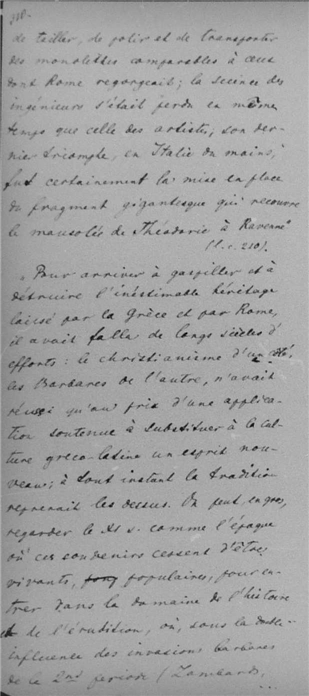 310.
de tailler, de polir et de transporter
des monolithes comparables à ceux
dont Rome regorgeait; la science des
ingénieurs s'était perdu en même
temps que celle des artistes, son der-
nier triomphe, en Italie du moins,
fut certainement la mise en place
du fragment gigantesque qui recouvre
le mausolée de Théodoric à Ravenne"
(l. c. 210).
"Pour arriver à gaspiller et à
détruire l'inéstimable héritage
laissé par la Grèce et par Rome,
il avait fallu de longs siècles d'
efforts: le christianisme d'un côté,
les Barbares de l'autre, n'avait
réussi qu'au prix d'une applica-
tion soutenue à substituer à la cul-
ture greco-latine un esprit nou-
veau; à tout instant la tradition
reprenait les dessus. On peut, en gros,
regarder le XI s. comme l'époque
où ces souvenirs cessent d'être
vivants, populaires, pour en-
trer dans la domaine de l'histoire
et de l'érudition, où, sous la double
influence des invasions barbares
de la 2me periode (Lombards,